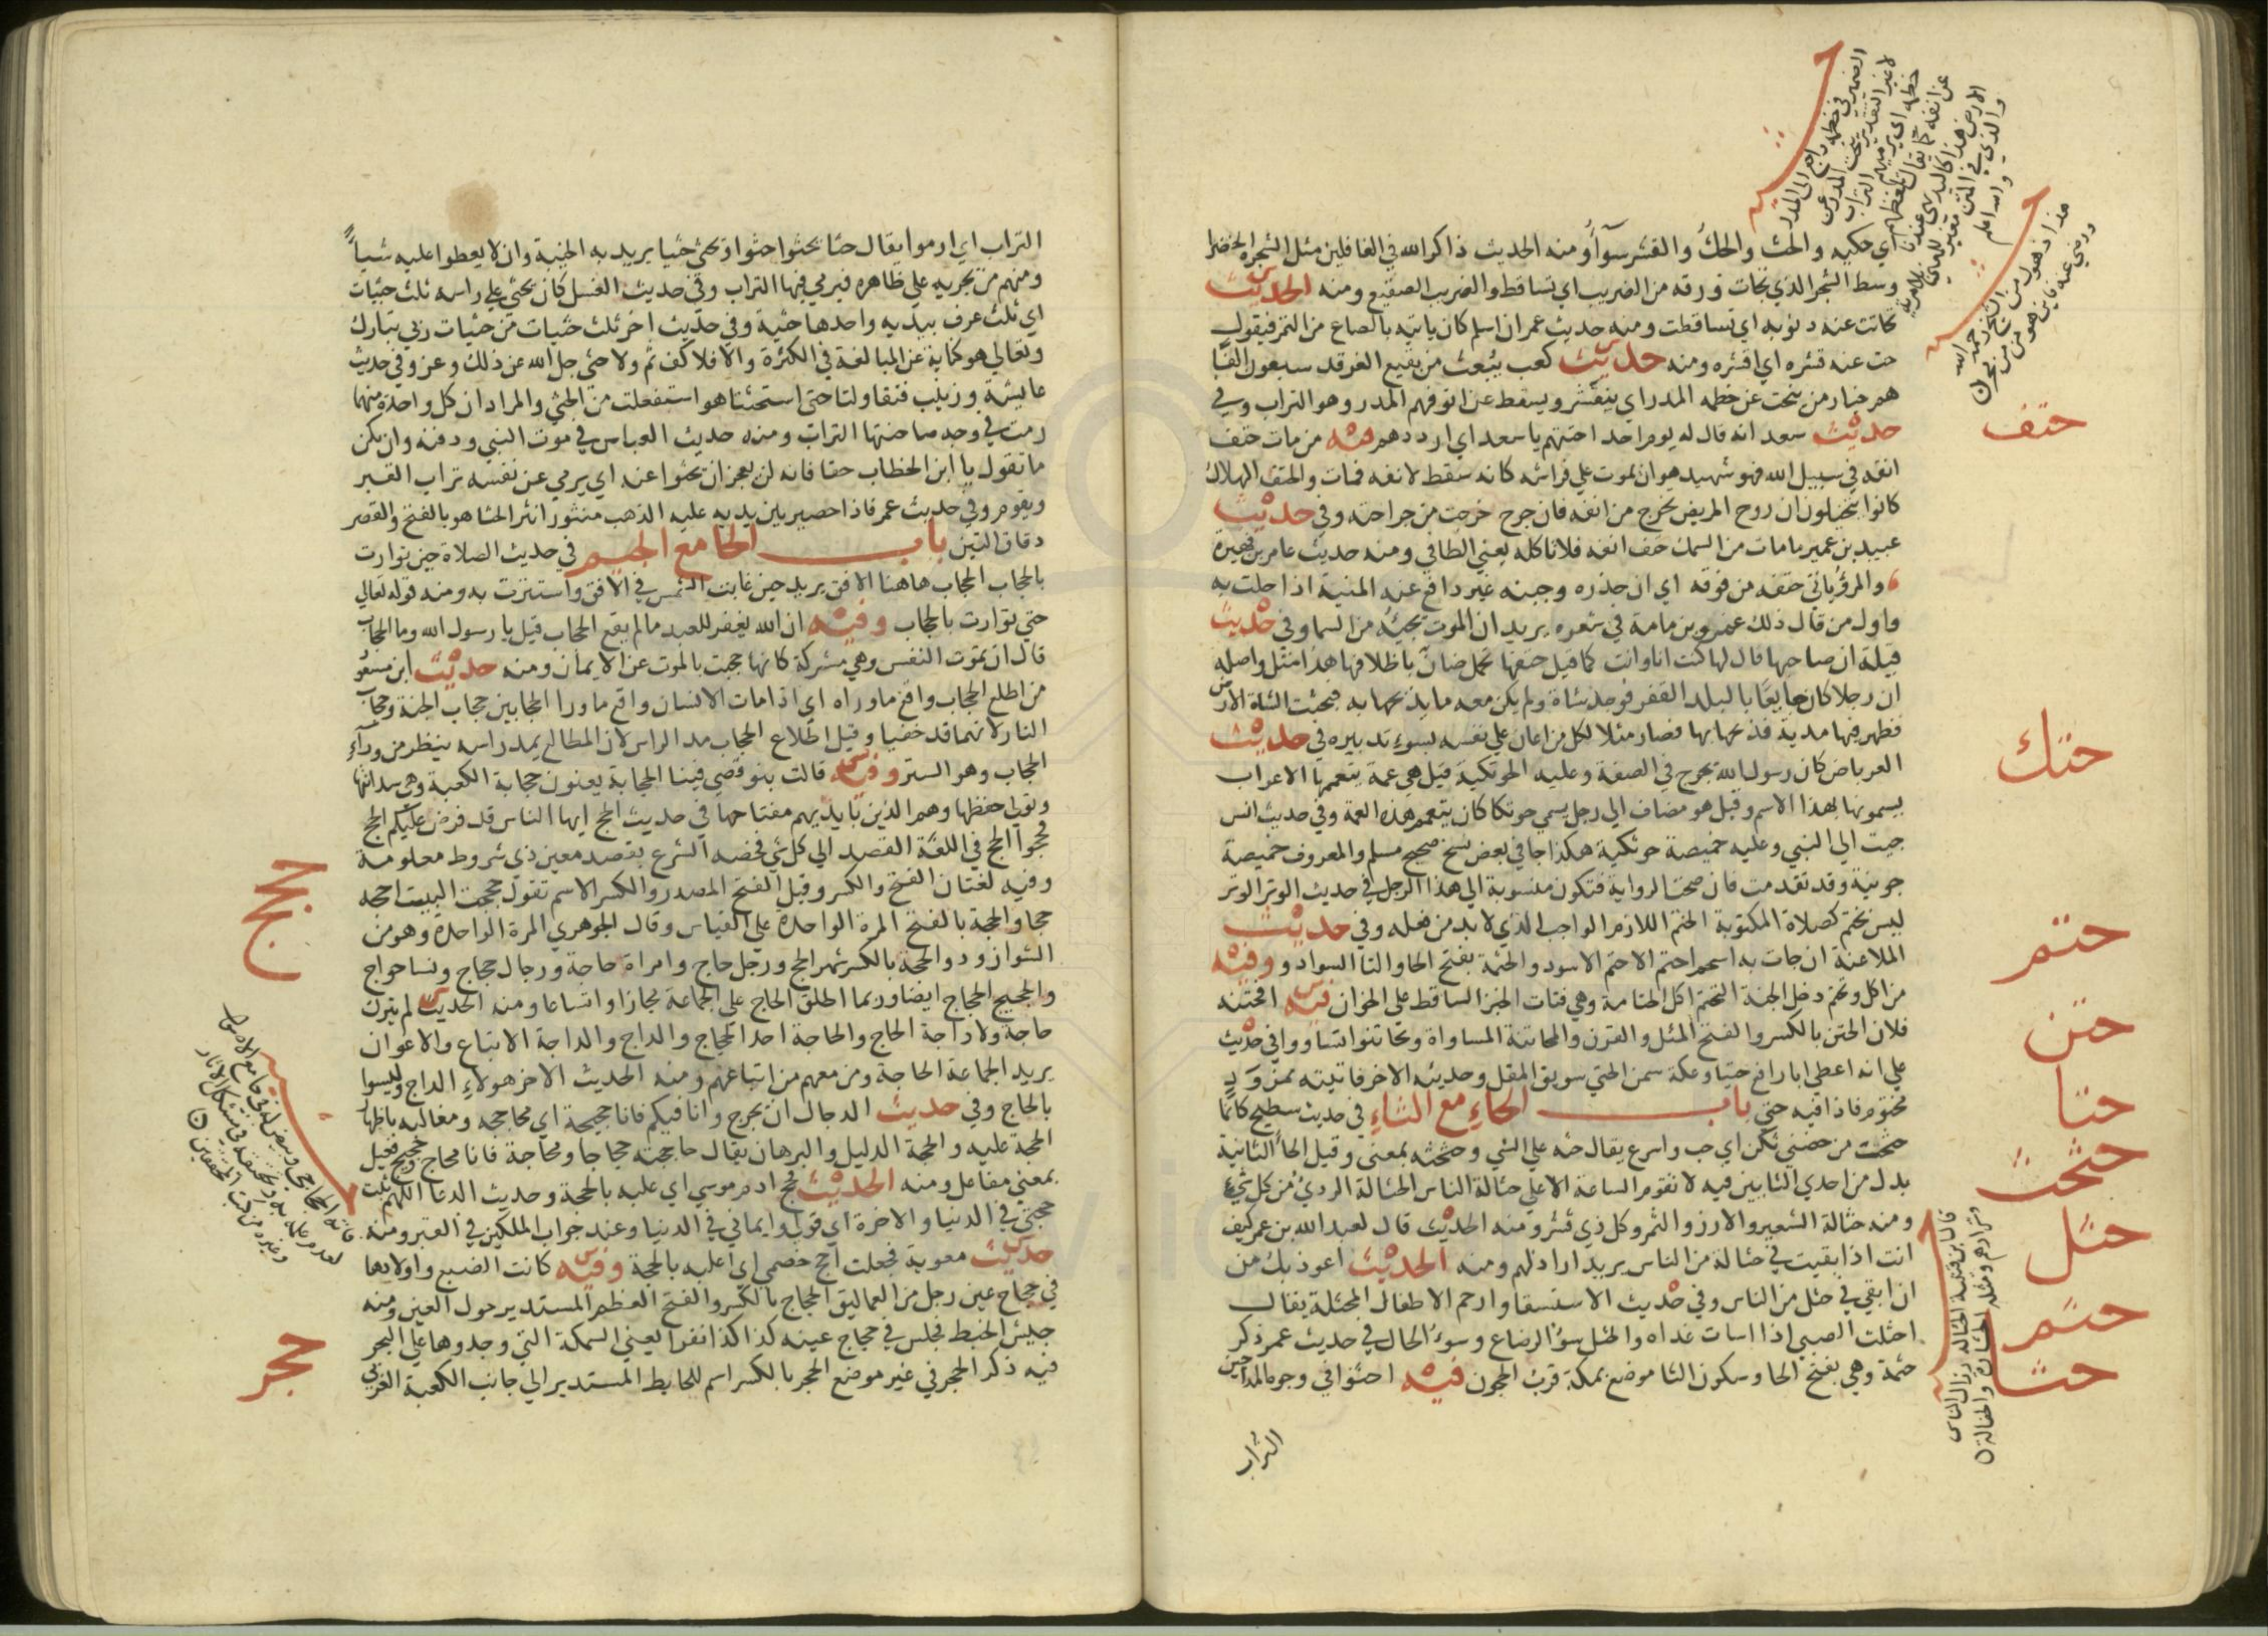 أي حكيه والحت والحك والقشر سواء ومنه الحديث ذاكر الله في الغافلين مثل الشجرة الخضرا
وسط الشجر الذي تحات ورقه من الضريب اي تساقط والضريب الصقيع ومنه الحديث
تحاتت عنه ذنوبه اي تساقطت ومنه حديث عمر ان اسلم كان ياتيه بالصاع من التمر فيقول
حت عنه قشره اي اقشره ومنه حديث كعب يبعث من بقيع الغرقد سبعون الفا
هم خيار من ينحت عن خطمه المدر اي ينقشر ويسقط عن انوفهم المدر وهو التراب وفي
حديث سعد انه قال له يوم احد احتهم يا سعد اي ارددهم فيه من مات حتف
انفه في سبيل الله فهو شهيد هو ان يموت علي فراشه كانه سقط لانفه فمات والحتف الهلاك
كانوا يتخيلون ان روح المريض تخرج من انفه فان جرح خرجت من جراحته وفي حديث
عبيد بن عمير ما مات من السمك حتف انفه فلا تاكله يعني الطافي ومنه حديث عامر بن فهيرة
والمرء ياتي حتفه من فوقه اي ان حذره وجبنه غير دافع عنه المنية اذا حلت به
واول من قال ذلك عمرو بن مامة في شعره يريد ان الموت يجيئه من السما وفي حديث
قيلة ان صاحبها قال لها كنت انا وانت كما قيل حتفها تحمل ضان باظلافها هذا مثل واصله
ان رجلا كان جايعا بالبلد القفر فوجد شاة ولم يكن معه ما يذبحها به فبحثت الشاة الارض
فظهر فيها مدية فذبحها بها فصار مثلا لكل من اعان علي نفسه بسوء تدبيره في حديث
العرباض كان رسول الله يخرج في الصفة وعليه الحوتكية قيل هي عمة يتعممها الاعراب
يسمونها بهذا الاسم وقيل هو مضاف الي رجل يسمي حوتكا كان يتعمم هذه العمة وفي حديث انس
جيت الي النبي وعليه خميصة حوتكية هكذا جا في بعض نسخ صحيح مسلم والمعروف خميصة
جونية وقد تقدمت فان صحت الرواية فتكون منسوبة الي هذا الرجل في حديث الوتر الوتر
ليس بحتم كصلاة المكتوبة الحتم اللازم الواجب الذي لا بد من فعله وفي حديث
الملاعنة ان جات به اسحم احتم الاحتم الاسود والحتمة بفتح الحا والتا السواد وفيه
من اكل وتحتم دخل الجنة التحتم اكل الحتامة وهي فتات الخبز الساقط علي الخوان فيه افحتنه
فلان الحتن بالكسر والفتح المثل والقرن والمحاتنة المساواة وتحاتنوا تساووا وفي حديث
علي انه اعطي ابا رافع حتيا وعكة سمن الحتي سويق المقل وحديثه الاخر فاتيته بمزود
مختوم فاذا فيه حتي باب الحاء مع الثاء في حديث سطيح كانما
حثحث من حضني ثكن اي حث واسرع يقال حثه علي الشي وحثحثه بمعني وقيل الحا الثانية
بدل من احدي الثايين فيه لا تقوم الساعة الا علي حثالة الناس الحثالة الردئ من كل شئ
ومنه حثالة الشعير والارز والتمر وكل ذي قشر ومنه الحديث قال لعبد الله بن عمر كيف
انت اذا بقيت في حثالة من الناس يريد اراذلهم ومنه الحديث اعوذ بك من
ان ابقي في حثل من الناس وفي حديث الاستسقا وارحم الاطفال المحثلة يقال
احثلت الصبي اذا اسات غذاه والحثل سوء الرضاع وسوء الحال في حديث عمر ذكر
حثمة وهي بفتح الحا وسكون الثا موضع بمكة قرب الحجون فيه احثوا في وجوه المداحين
التراب
حتف
حتك
حتم
حتن
حتا
حثحث
حثل
حثم
حثا
قال ابن قتيبة الحثالة رذال الناس
وشرارهم ومثله الحثارة والحفالة
التراب اي ارموا يقال حثا يحثوا حثوا ويحثي حثيا يريد به الخيبة وان لا يعطوا عليه شيا
ومنهم من يجريه علي ظاهره فيرمي فيها التراب وفي حديث الغسل كان يحثي علي راسه ثلث حثيات
اي ثلث غرف بيديه واحدها حثية وفي حديث اخر ثلث حثيات من حثيات ربي تبارك
وتعالي هو كناية عن المبالغة في الكثرة والا فلا كف ثم ولا حثي جل الله عن ذلك وعز وفي حديث
عايشة وزينب فتقاولتا حتي استحثتا هو استفعلت من الحثي والمراد ان كل واحدة منهما
رمت في وجه صاحبتها التراب ومنه حديث العباس في موت النبي ودفنه وان يكن
ما تقول يا ابن الخطاب حقا فانه لن يعجز ان يحثوا عنه اي يرمي عن نفسه تراب القبر
ويقوم وفي حديث عمر فاذا حصير بين يديه عليه الذهب منثورا نثر الحثا هو بالفتح والقصر
دقاق التبن باب الحا مع الجيم في حديث الصلاة حين توارت
بالحجاب الحجاب هاهنا الافق يريد حين غابت الشمس في الافق واستترت به ومنه قوله تعالي
حتي توارت بالحجاب وفيه ان الله يغفر للعبد ما لم يقع الحجاب قيل يا رسول الله وما الحجاب
قال ان تموت النفس وهي مشركة كانها حجبت بالموت عن الايمان ومنه حديث ابن مسعود
من اطلع الحجاب واقع ما وراه اي اذا مات الانسان واقع ما ورا الحجابين حجاب الجنة وحجاب
النار لانهما قد خفيا وقيل اطلاع الحجاب مد الراس لان المطالع يمد راسه ينظر من وراء
الحجاب وهو الستر وفيه قالت بنو قصي فينا الحجابة يعنون حجابة الكعبة وهي سدانتها
وتولي حفظها وهم الذين بايديهم مفتاحها في حديث الحج ايها الناس قد فرض عليكم الحج
فحجوا الحج في اللغة القصد الي كل شي فخصه الشرع بقصد معين ذي شروط معلومة
وفيه لغتان الفتح والكسر وقيل الفتح المصدر والكسر الاسم تقول حججت البيت احجه
حجا والحجة بالفتح المرة الواحدة علي القياس وقال الجوهري المرة الواحدة وهو من
الشواذ وذو الحجة بالكسر شهر الحج ورجل حاج وامراة حاجة ورجال حجاج ونسا حواج
والحجيج الحجاج ايضا وربما اطلق الحاج علي الجماعة مجازا واتساعا ومنه الحديث لم يترك
حاجة ولا داجة الحاج والحاجة احد الحجاج والداج والداجة الاتباع والاعوان
يريد الجماعة الحاجة ومن معهم من اتباعهم ومنه الحديث الاخر هولاء الداج وليسوا
بالحاج وفي حديث الدجال ان يخرج وانا فيكم فانا حجيجه اي محاججه ومغالبه باظهار
الحجة عليه والحجة الدليل والبرهان يقال حاججته حجاجا ومحاجة فانا محاج وحجيج فعيل
بمعني مفاعل ومنه الحديث فحج ادم موسي اي غلبه بالحجة وحديث الدعا اللهم ثبت
حجتي في الدنيا والاخرة اي قولي وايماني في الدنيا وعند جواب الملكين في القبر ومنه
حديث معوية فجعلت احج خصمي اي اغلبه بالحجة وفيه كانت الضبع واولادها
في حجاج عين رجل من العماليق الحجاج بالكسر والفتح العظم المستدير حول العين ومنه
جيش الخبط فجلس في حجاج عينه كذا كذا نفرا يعني السمكة التي وجدوها علي البحر
فيه ذكر الحجر في غير موضع الحجر بالكسر اسم للحايط المستدير الي جانب الكعبة الغربي
حجج
حجر